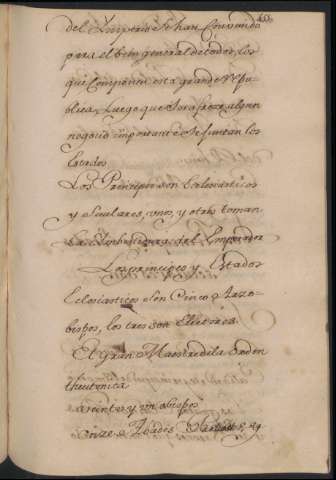 del Imperio se han Convenido
para el bien general de todos, los
que Componen esta grande Repu
blica, Luego que se ofreze algun
negocio importante se Juntan los
Estados
Los Principes son Eclesiasticos
y seculares, unos, y otros toman
la Embestidura del Emperador
Los principes y Estados
Eclesiasticos son Cinco Arzo-
bispos, los tres son Electores
El Gran Maestre de la Orden
theutonica
Veinte y un obispos
onze Abades